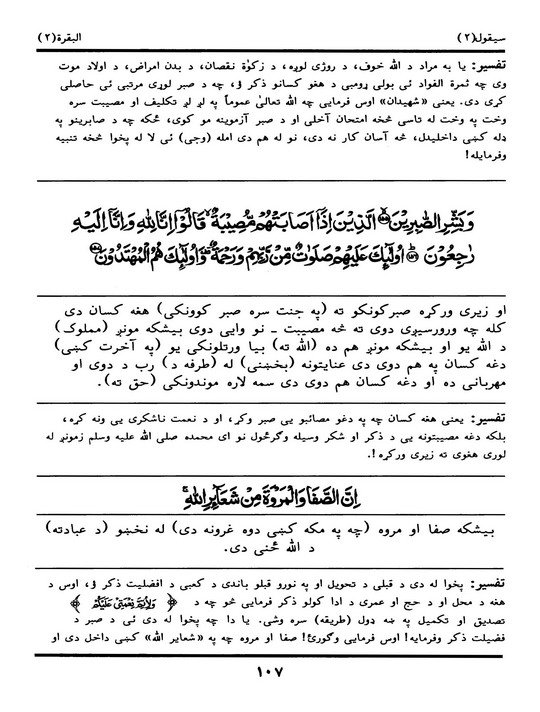 سیقول(۲)
البقرة(۲)
تفسیر: یا به مراد د الله خوف، د روژی لوږه، د زکوٰة نقصان، د بدن امراض، د اولاد موت
وی چه ثمرة الفواد ئی بولی ړومبی د هغو کسانو ذکر ؤ، چه د صبر لوړی مرتبی ئی حاصلی
کړی دی. یعنی «شهیدان» اوس فرمایی چه الله تعالیٰ عموماً په لږ لږ تکلیف او مصیبت سره
وخت په وخت له تاسی څخه امتحان آخلی او د صبر آزموینه مو کوی، ځکه چه د صابرینو په
ډله کښی داخلیدل، څه آسان کار نه دی، نو له هم دی امله (وجی) ئی لا له پخوا څخه تنبیه
وفرمایله!
وَبَشِّرِ الصّٰبِرِیْنَ ﴿۱۵۵﴾ الَّذِیْنَ اِذَآ اَصَابَتْهُمْ مُّصِیْبَةٌ قَالُوْٓا اِنَّا لِلّٰهِ وَاِنَّآ اِلَیْهِ
رٰجِعُوْنَ ﴿۱۵۶﴾ اُولٰٓئِکَ عَلَیْهِمْ صَلَوٰتٌ مِّنْ رَّبِّهِمْ وَرَحْمَةٌ وَاُولٰٓئِکَ هُمُ الْمُهْتَدُوْنَ ﴿۱۵۷﴾
او زیری ورکړه صبرکونکو ته (په جنت سره صبر کوونکی) هغه کسان دی
کله چه ورورسیږی دوی ته څه مصیبت ـ نو وایی دوی بیشکه مونږ (مملوک)
د الله یو او بیشکه مونږ هم ده (الله ته) بیا ورتلونکی یو (په آخرت کښی)
دغه کسان په هم دوی دی عنایتونه (بخښنی) له (طرفه د) رب د دوی او
مهربانی ده او دغه کسان هم دوی دی سمه لاره موندونکی (حق ته).
تفسیر: یعنی هغه کسان چه په دغو مصائبو یی صبر وکړ، او د نعمت ناشکری یی ونه کړه،
بلکه دغه مصیبتونه یی د ذکر او شکر وسیله وګرځول نو ای محمده صلی الله علیه وسلم زمونږ له
لوری هغوی ته زیری ورکړه !.
اِنَّ الصَّفَا وَالْمَرْوَةَ مِنْ شَعَآئِرِ اللّٰهِ
بیشکه صفا او مروه (چه په مکه کښی دوه غرونه دی) له نخښو (د عبادته)
د الله ځنی دی.
تفسیر: پخوا له دی د قبلی د تحویل او په نورو قبلو باندی د کعبی د افضلیت ذکر ؤ، اوس د
هغه د محل او د حج او عمری د ادا کولو ذکر فرمایی څو چه د ﴿ وَلِاُتِمَّ نِعْمَتِیْ عَلَیْکُمْ ﴾
تصدیق او تکمیل په ښه ډول (طریقه) سره وشی. یا دا چه پخوا له دی ئی د صبر د
فضیلت ذکر وفرمایه! اوس فرمایی وګورئ! صفا او مروه چه په «شعایر الله» کښی داخل دی او
۱۰۷